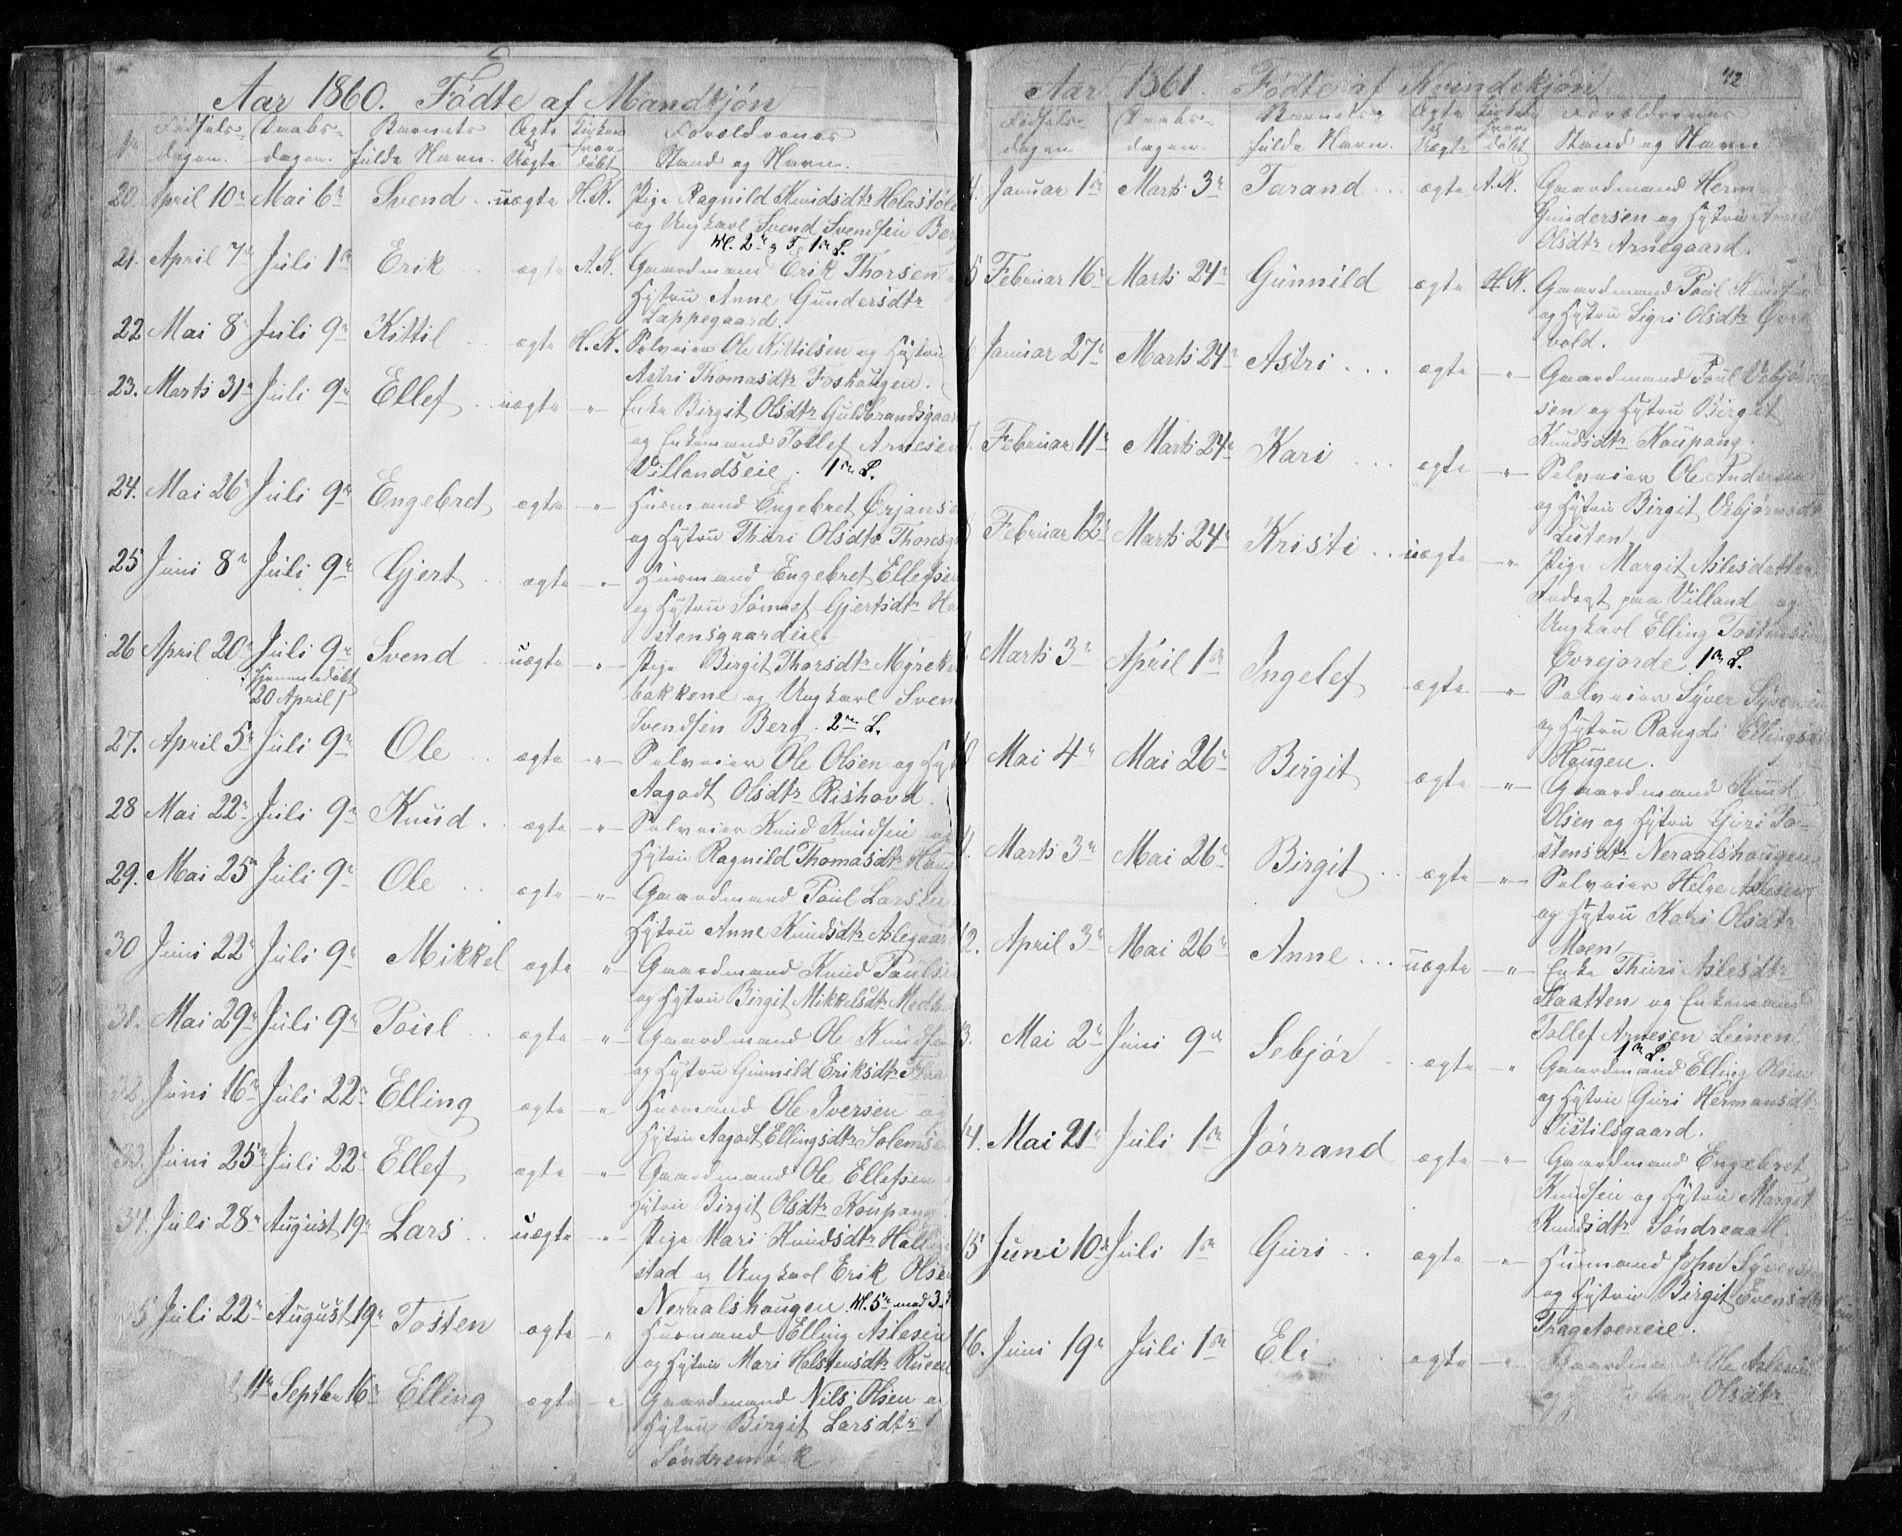 Aar 1860. Födte af Mandkjön
Nr. Födsels-dagen. Daabs-dagen. Barnets fulde Navn. Ægte og Uægte Kirken hvor døbt Forældrenes Stand og Navn.
20. April 10de Mai 6te Svend .. uægte H.K. Pige Ragnild Knudsdtr Holastöl
og Ungkarl Svend Svendsen Berg
M. 2de og F. 1ste L.
21. April 7de Juli 1ste Erik .. ægte A.K. Gaardmand Erik Thorsen
Hustru Anne Gundersdtr
Lappegaard.
22. Mai 8de Juli 9de Kittil .. ægte H.K. Selveier Ole Kittilsen og Hustru
Astri Thomasdtr Foshaugen.
23. Marts 31te Juli 9de Ellef .. uægte -"- Enke Birgit Olsdtr Guldbrandsgaar
og Enkemand Tollef Arnesen
Villandseie. 1ste L.
24. Mai 26de Juli 9de Engebret ægte -"- Husmand Engebret Örjanse
og Hustru Thuri Olsdtr Thoresg
25 Juni 8de Juli 9de Gjert .. ægte -"- Husmand Engebret Ellefsen
og Hustru Sönnef Gjertsdtr Ha
stensgaardeie
26 April 20de Juli 9de Svend .. uægte -"- Pige Birgit Thorsdtr Myrek
(Hjemmedöbt
20 April) bakkene og Ungkarl Sven
Svendsen Berg. 2den L.
27. April 5te Juli 9de Ole .. ægte -"- Selveier Ole Olsen og Hust
Aagodt Olsdtr Rishovd.
28 Mai 22de Juli 9de Knud .. ægte -"- Selveier Knud Knudsen og
Hustru Ragnild Thomasdtr Haug
29. Mai 25de Juli 9de Ole .. ægte -"- Gaardmand Paul Larsen
Hustru Anne Knudsdtr Aslegaar
30 Juni 22de Juli 9de Mikkel ægte " Gaardmand Knud Paulse
og Hustru Birgit Mikkelsdtr Medh
31. Mai 29de Juli 9de Paul .. ægte -"- Gaardmand Ole Knudsen
og Hustru Gunnild Eriksdtr Flaa
32. Juni 16de Juli 22de Elling ægte " Husmand Ole Iversen og
Hustru Aagodt Ellingsdtr Solems
33. Juni 25de Juli 22de Ellef ægte " Gaardmand Ole Ellefsen
Hustru Birgit Olsdtr Kaupang
34. Juli 28de August 19de Lars .. uægte -"- Pige Mari Knudsdtr Hallin
stad og Ungkarl Erik Olse
Neraalshaugen. M. 5te med 3.
35 Juli 22de August 19de Tosten ægte -"- Husmand Elling Aslesen
og Hustru Mari Halstensdtr Rue
11te Septbr 16de Elling ægte " Gaardmand Nils Olsen o
Hustru Birgit Larsdtr
Söndremö
Aar 1861. Födte af Kvindekjön. 42
Födsels-dagen Daabs-dagen. Barnets fulde Navn. Ægte og Uægte Kirken hvor døbt Forældrenes Stand og Navn
4. Januar 1ste Marts 3de Tarand .. ægte A.K. Gaardmand Herm
Gundersen og Hustru
Olsdtr Arnegaard.
5 Februar 16de Marts 24de Gunnild ægte H.K. Gaardmand Paul Knudse
og Hustru Sigri Olsdtr Övre
vold.
6 Januar 27de Marts 24de Astri ... ægte -"- Gaardmand Paul Vebjörn
sen og Hustru Birgit
Knudsdtr Kaupang.
7. Februar 11te Marts 24de Kari ... ægte -"- Selveier Ole Anderse
og Hustru Birgit Vebjörnsdt
Luten.
Februar 12te Marts 24de Kristi .. uægte -"- Pige Margit Aslesdatter
Inderst paa Villand og
Ungkarl Elling Tostensen
Evrejorde. 1ste L.
Marts 3de April 1ste Ingelef ægte -"- Selveier Syver Syversen
og Hustru Rangdi Ellingsdtr
Haugen.
Mai 4de Mai 26de Birgit ægte -"- Gaardmand Knud
Olsen og Hustru Guri To-
stensdtr Neraalshaugen
Marts 3de Mai 26de Birgit .. ægte -"- Selveier Helge Aslesen
og Hustru Kari Olsdtr
Moen
12. April 3de Mai 26de Anne ... uægte -"- Enke Thuri Aslesdtr
Slaatten og Enkemand
Tollef Arnesen Leinen.
1ste L.
13. Mai 2de Juni 9de Sebjör .. ægte " Gaardmand Elling Olsen
og Hustru Guri Hermansdt
Tistilsgaard.
14. Mai 21de Juli 1ste Jörrand ægte -"- Gaardmand Engebret
Knudsen og Hustru Margit
Knudsdtr Söndreaall.
15 Juni 10de Juli 1ste Guri .. ægte -"- Husmand John Syverse
og Hustru Birgit Svensdtr
Trageteneie.
16. Juni 19de Juli 1ste Eli .. ægte -"- Gaardmand Ole Aslesen
og Olsdtr